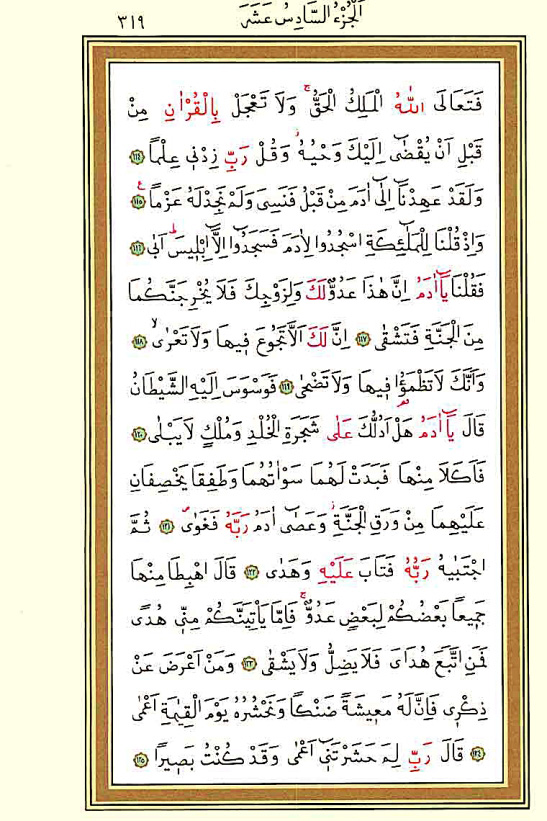 ٣١٩ اَلْجُزْءُ السَّادِسُ عَشَرَ
فَتَعَالَى اللّٰهُ الْمَلِكُ الْحَقُّۚ وَلَا تَعْجَلْ بِالْقُرْاٰنِ مِنْ
قَبْلِ اَنْ يُقْضٰٓى اِلَيْكَ وَحْيُهُۘ وَقُلْ رَبِّ زِدْنٖى عِلْمًا ﴿١١٤﴾
وَلَقَدْ عَهِدْنَٓا اِلٰٓى اٰدَمَ مِنْ قَبْلُ فَنَسِىَ وَلَمْ نَجِدْ لَهُ عَزْمًاࣖ ﴿١١٥﴾
وَاِذْ قُلْنَا لِلْمَلٰٓئِكَةِ اسْجُدُوا لِاٰدَمَ فَسَجَدُٓوا اِلَّٓا اِبْلٖيسَۜ اَبٰى ﴿١١٦﴾
فَقُلْنَا يَٓا اٰدَمُ اِنَّ هٰذَا عَدُوٌّ لَكَ وَلِزَوْجِكَ فَلَا يُخْرِجَنَّكُمَا
مِنَ الْجَنَّةِ فَتَشْقٰى ﴿١١٧﴾ اِنَّ لَكَ اَلَّا تَجُوعَ فٖيهَا وَلَا تَعْرٰىۙ ﴿١١٨﴾
وَاَنَّكَ لَا تَظْمَؤُ۬ا فٖيهَا وَلَا تَضْحٰى ﴿١١٩﴾ فَوَسْوَسَ اِلَيْهِ الشَّيْطَانُ
قَالَ يَٓا اٰدَمُ هَلْ اَدُلُّكَ عَلٰى شَجَرَةِ الْخُلْدِ وَمُلْكٍ لَا يَبْلٰى ﴿١٢٠﴾
فَاَكَلَا مِنْهَا فَبَدَتْ لَهُمَا سَوْاٰتُهُمَا وَطَفِقَا يَخْصِفَانِ
عَلَيْهِمَا مِنْ وَرَقِ الْجَنَّةِۘ وَعَصٰٓى اٰدَمُ رَبَّهُ فَغَوٰىۖ ﴿١٢١﴾ ثُمَّ
اجْتَبٰيهُ رَبُّهُ فَتَابَ عَلَيْهِ وَهَدٰى ﴿١٢٢﴾ قَالَ اهْبِطَا مِنْهَا
جَمٖيعًا بَعْضُكُمْ لِبَعْضٍ عَدُوٌّۚ فَاِمَّا يَاْتِيَنَّكُمْ مِنّٖى هُدًى
فَمَنِ اتَّبَعَ هُدَاىَ فَلَا يَضِلُّ وَلَا يَشْقٰى ﴿١٢٣﴾ وَمَنْ اَعْرَضَ عَنْ
ذِكْرٖى فَاِنَّ لَهُ مَعٖيشَةً ضَنْكًا وَنَحْشُرُهُ يَوْمَ الْقِيٰمَةِ اَعْمٰى
﴿١٢٤﴾ قَالَ رَبِّ لِمَ حَشَرْتَنٖٓى اَعْمٰى وَقَدْ كُنْتُ بَصٖيرًا ﴿١٢٥﴾